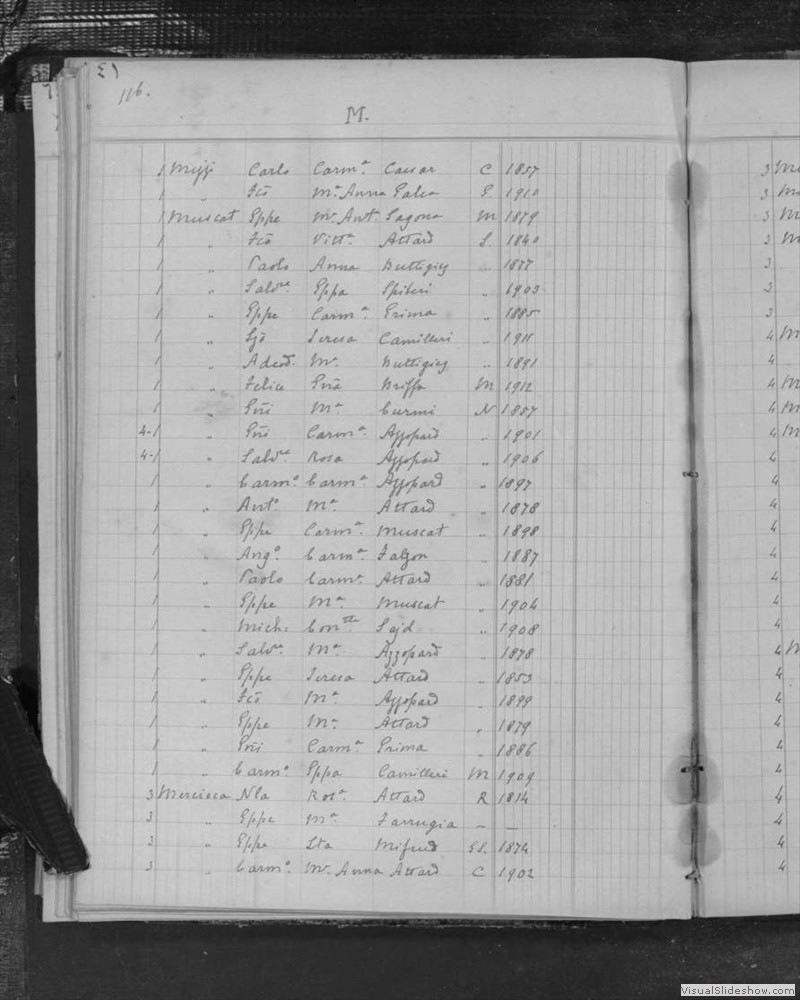 116.
M.
1 Mizzi Carlo Carmª Caesar C 1857
1 " Fcõ Mª Anna Galea G. 1910
1 Muscat Gppe Mª Antª Sagona M 1879
1 " Fcõ Vittª Attard S. 1840
1 " Paolo Anna Buttigieg " 1877
1 " Salvre Gppa Spiteri " 1903
1 " Gppe Carmª Grima " 1885
1 " Teresa Camilleri " 1911
1 " Adeod. Mª Buttigieg " 1891
1 " Felice Briffa M 1912
1 " Gñi Mª Curmi N 1857
4-1 " Gñi Carmª Azzopard " 1901
4-1 " Salvre Rosa Azzopard " 1906
1 " Carmº Carmª Azzopard " 1897
1 " Antº Mª Attard " 1878
1 " Gppe Carmª Muscat " 1898
1 " Angº Carmª Falzon " 1887
1 " Paolo Carmª Attard " 1881
1 " Gppe Mª Muscat " 1904
1 " Mich: Sajd " 1908
1 " Salvre Mª Azzopard " 1878
1 " Gppe Teresa Attard " 1853
1 " Fcõ Mª Azzopard " 1899
1 " Gppe Mª Attard " 1879
1 " Gñi Carmª Grima " 1886
1 " Carmº Gppa Camilleri M 1909
3 Mercieca Nla Rosª Attard R 1814
3 " Gppe Mª Farrugia – –
3 " Gppe Mifsud 1874
3 " Carmº Mª Anna Attard C 1902
VisualSlideshow.com